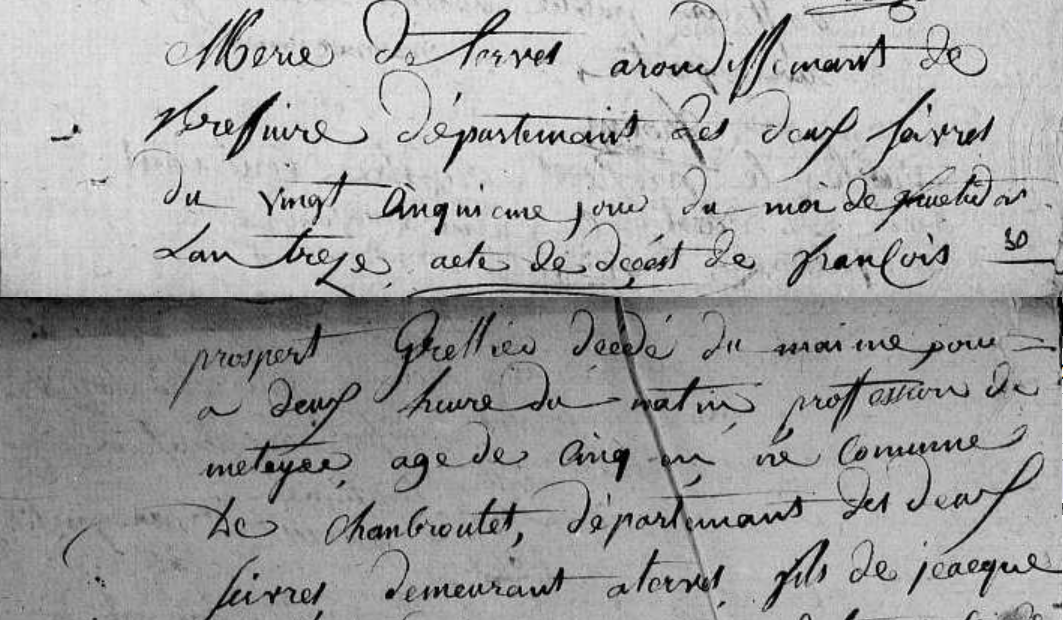 Merie de terves arondissemant de
Bressuire départemant des deux saivres
du vingt cinquieme jour du moi de fructidor
Lan treze acte de décest de franCois 30
prospert Grellier décédé du maime jour
a deux heure du matin proffession de
meteyee age de cinq an né comunne
De chanbroutet, départemant des deux
seivres demeurant a terves fils de jeacque